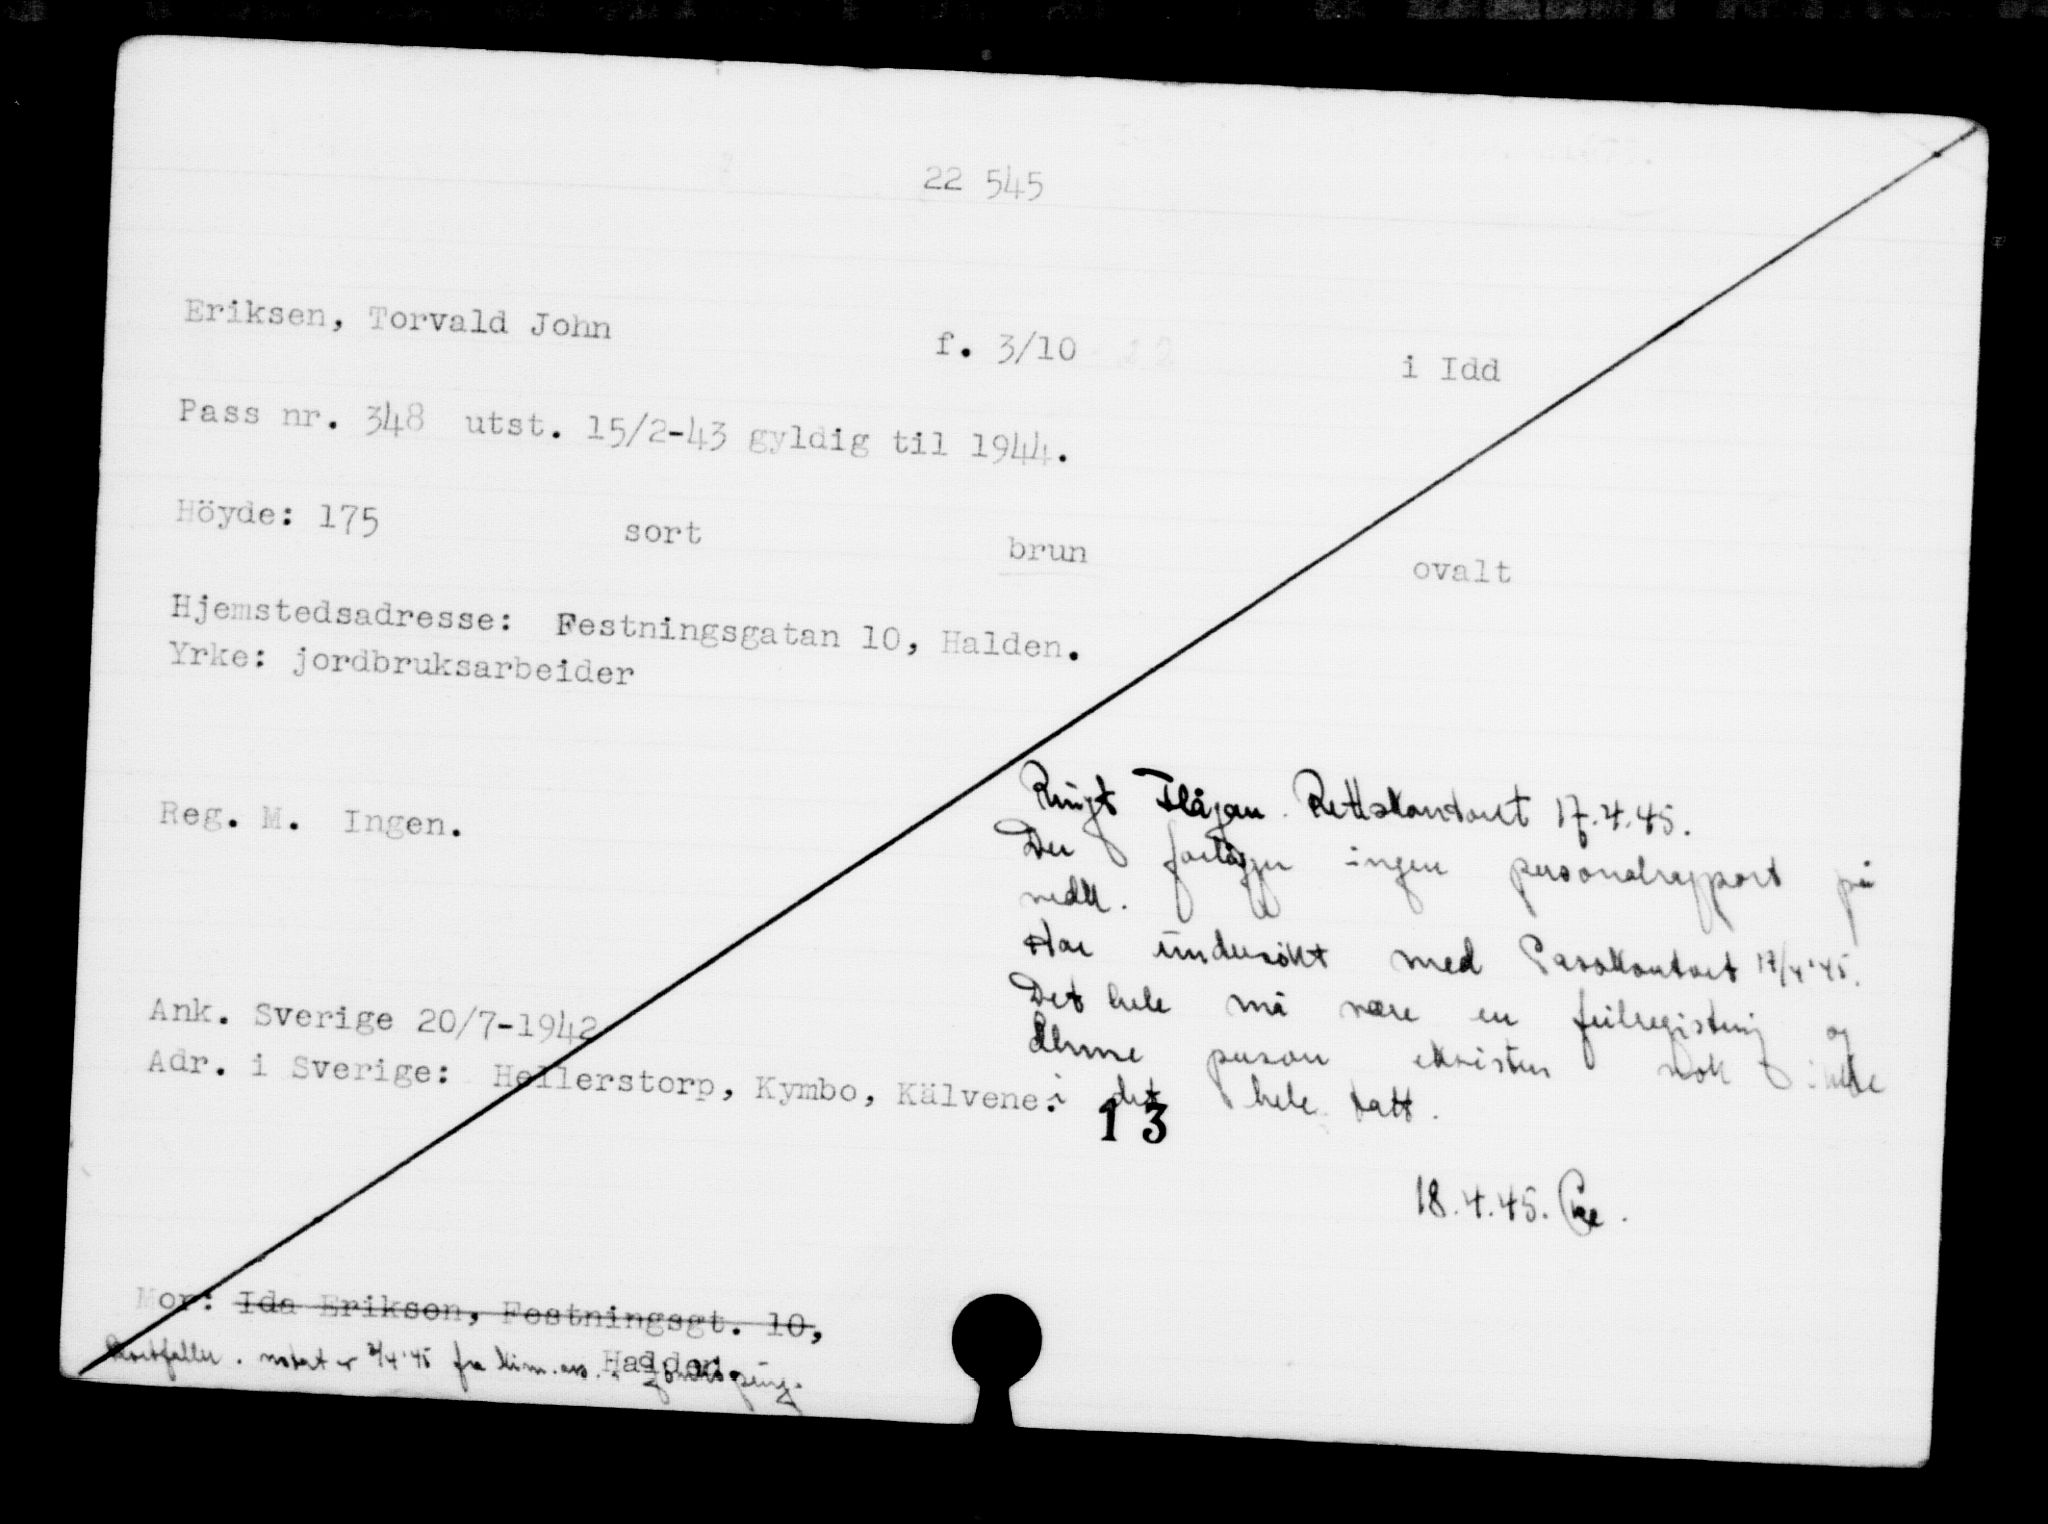 22 545
Eriksen, Torvald John f. 3/10 22 i Idd
Pass nr. 348 utst. 15/2-43 gyldig til 1944.
Höyde: 175 sort brun ovalt
Hjemstedsadresse: Festningsgatan 10, Halden.
Yrke: jordbruksarbeider
Reg. M. Ingen.
Ringt Flågan. Rettskontoret 17.4.45.
Der foreligger ingen personalrapport på
vedk.
Har undersökt med Passkontoret 17/4'45.
Det hele må være en feilregistering og
denne person eksisterer nok ikke
i det hele tatt.
Ank. Sverige 20/7-1942
Adr. i Sverige: Hellerstorp, Kymbo, Kälvene.
13
18.4.45.
Mor: Ida Eriksen, Festningsgt. 10,
Halden.
Bortfaller. notat er 3/4'45 fra Krim.ass. Jönköping.